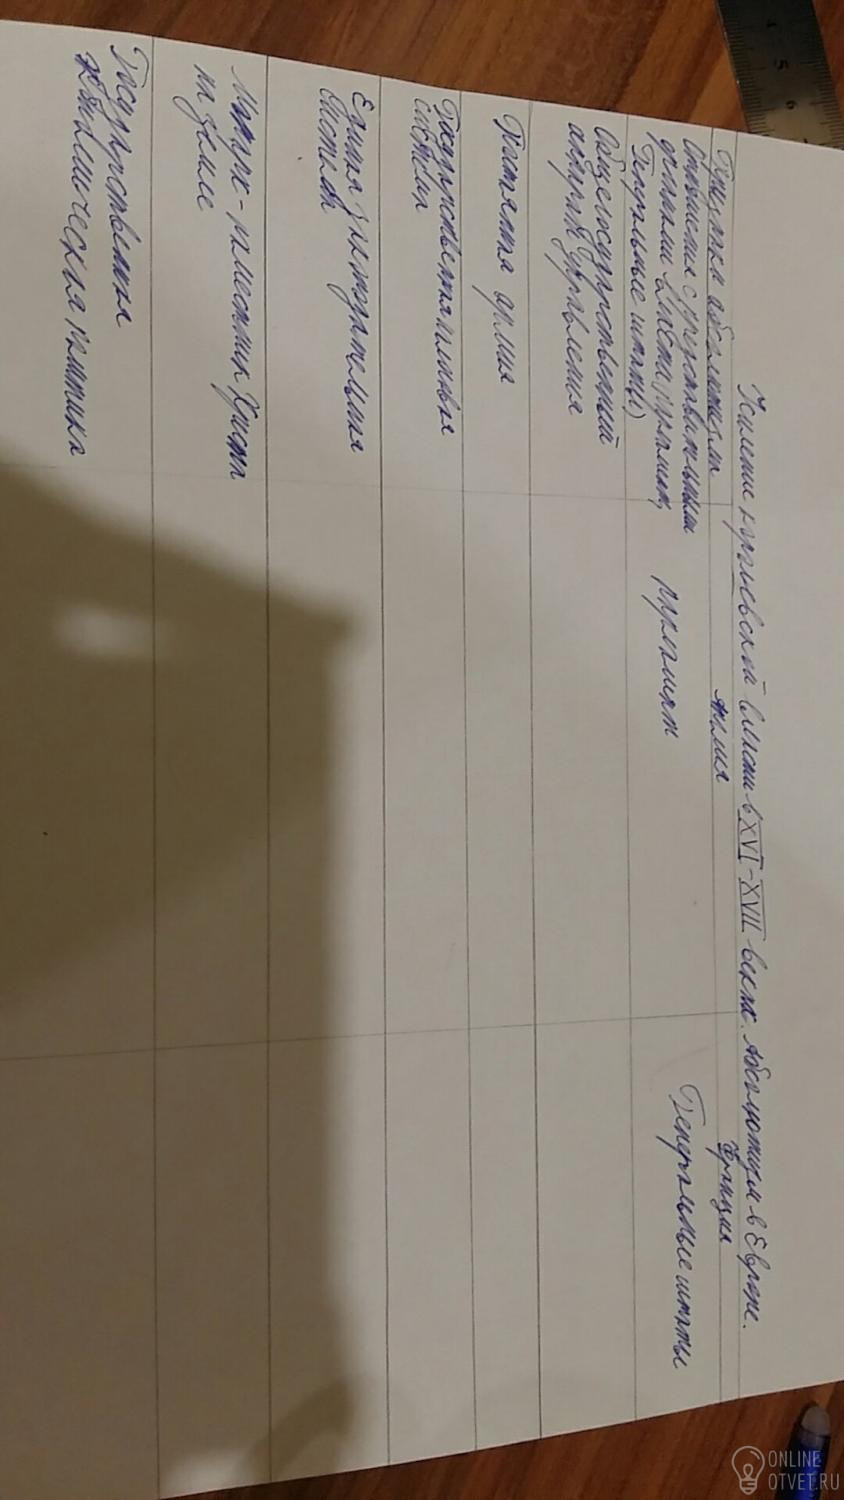 Усиление королевской власти в XVI-XVII веках. Абсолютизм в Европе.
Признаки абсолютизма
Англия
Франция
Отношения с представительными
органами власти (парламент,
Генеральные штаты)
парламент
Генеральные штаты
Общегосударственный
аппарат управления
Постоянная армия
Государственная налоговая
система
Единая законодательная
система
Монарх - наместник Христа
на Земле
Государственная
экономическая политика
ONLINE
OTVET.RU